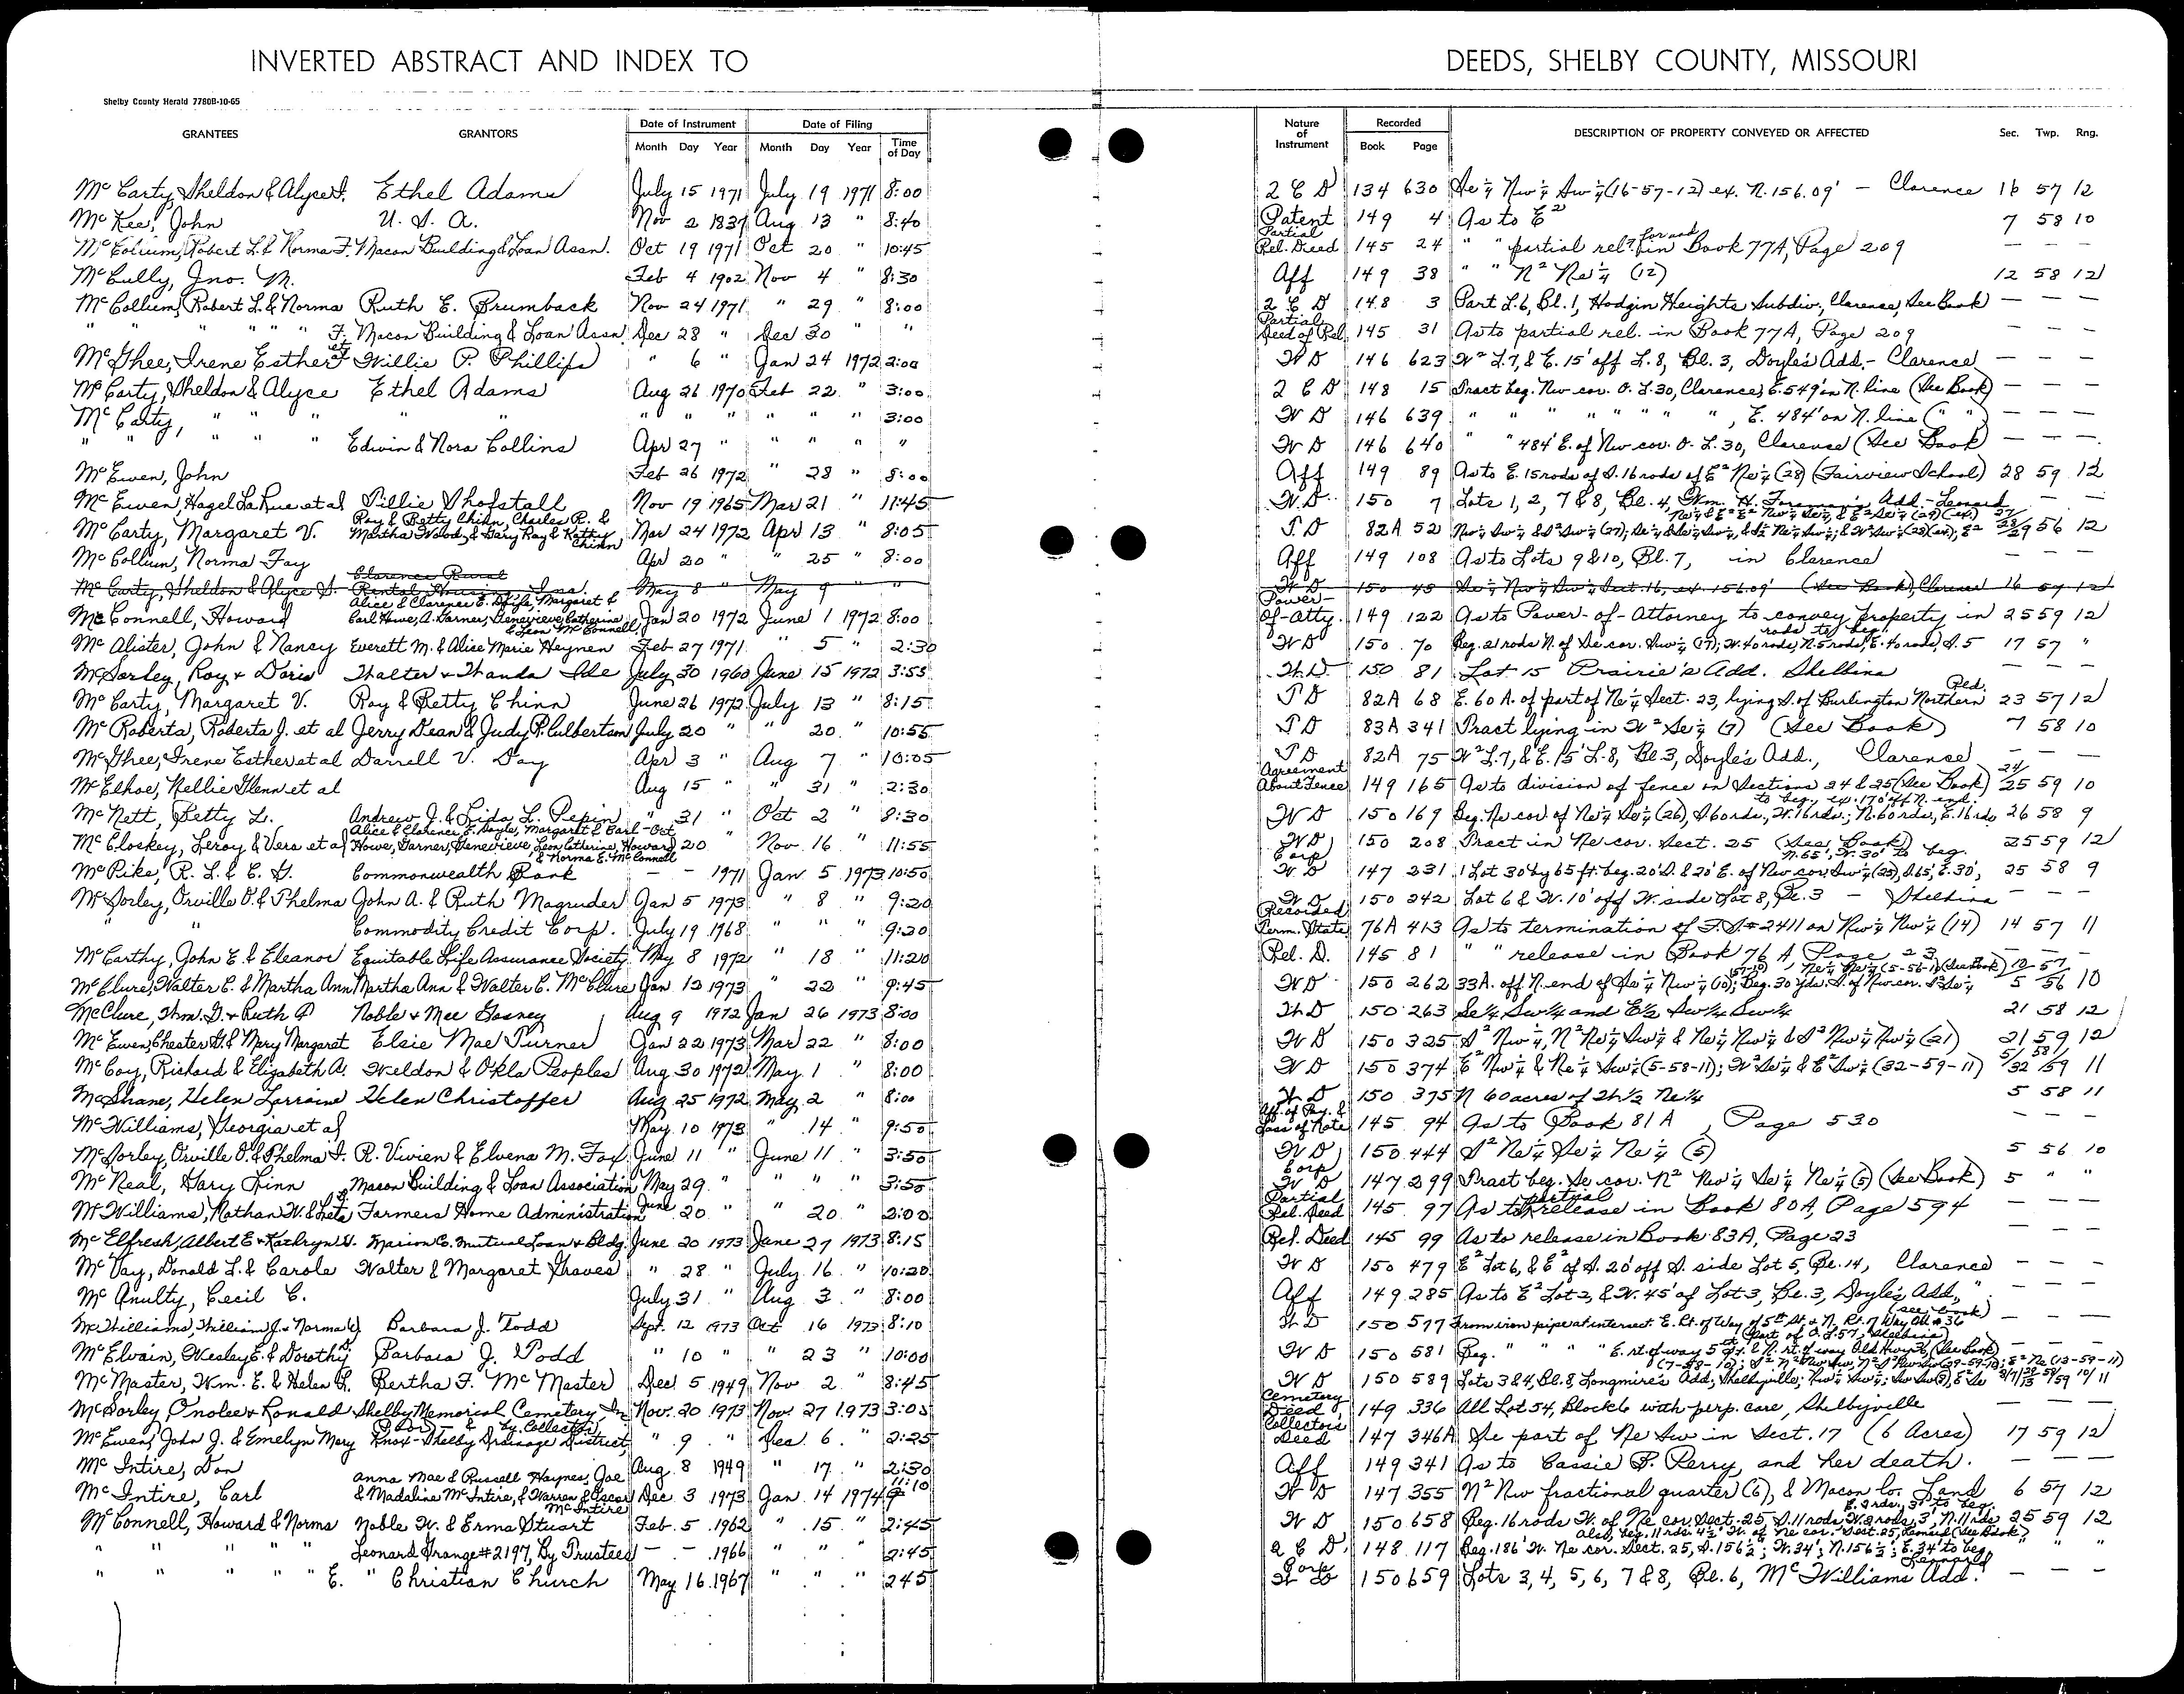 INVERTED ABSTRACT AND INDEX TO DEEDS, SHELBY COUNTY, MISSOURI
Shelby County Herald 7780B-10-65
GRANTEES GRANTORS Date of Instrument Date of Filing Nature of Instrument Recorded DESCRIPTION OF PROPERTY CONVEYED OR AFFECTED Sec. Twp. Rng.
Month Day Year Month Day Year Time of Day Book Page
McCarty, Sheldon & Alyce F. Ethel Adams July 15 1971 July 19 1971 8:00 2 C D 134 630 Se¼ Nw¼ Sw¼ (16-57-12) ex. N. 156.09' — Clarence 16 57 12
McKee, John U. S. A. Nov 2 1837 Aug 13 " 8:40 Patent 149 4 As to E² 7 58 10
McCollum, Robert L. & Norma F. Macon Building & Loan Assn. Oct 19 1971 Oct 20 " 10:45 Partial Rel. Deed 145 24 " " partial rel. found in Book 77A, Page 209 — — —
McCully, Jno. M. Feb 4 1902 Nov 4 " 8:30 Aff 149 38 " " N² Ne¼ (12) 12 58 12
McCollum, Robert L. & Norma Ruth E. Brumback Nov 24 1971 " 29 " 8:00 2 C D 148 3 Part L. 6, Bl. 1, Hodgin Heights Subdiv, Clarence, See Book — — —
" " " " " F. Macon Building & Loan Assn Dec 28 " Dec 30 " " Partial Deed of Rel. 145 31 As to partial rel. in Book 77A, Page 209 — — —
McGhee, Irene Esther et al Willie P. Phillips " 6 " Jan 24 1972 2:00 W D 146 623 W² L. 7, & E. 15' off L. 8, Bl. 3, Doyle's Add. - Clarence — — —
McCarty, Sheldon & Alyce Ethel Adams Aug 26 1970 Feb 22 " 3:00 2 C D 148 15 Tract beg. Nw cor. O. L. 30, Clarence, E. 549' on N. line (See Book) — — —
McCarty, " " " " " " " " " " " 3:00 W D 146 639 " " " " " " " , E. 484' on N. line ( " " ) — — —
" " " " Edwin & Nora Collins Apr 27 " " " " " W D 146 640 " " 484' E. of Nw cor. O. L. 30, Clarence (See Book) — — —
McEwen, John Feb 26 1972 " 28 " 8:00 Aff 149 89 As to E. 15 rods of S. 16 rods of E² Ne¼ (28) (Fairview School) 28 59 12
McEwen, Hazel LaRue et al Tillie Shofstall Nov 19 1965 Mar 21 " 11:45 W. D. 150 7 Lots 1, 2, 7 & 8, Bl. 4, Wm. H. Foreman's Add. - Leonard — —
McCarty, Margaret V. Roy & Betty Chinn, Charles R. & Martha Woody & Gary Ray & Kathy Chinn Mar 24 1972 Apr 13 " 8:05 T. D 82A 52 56 12
McCollum, Norma Fay Apr 20 " " 25 " 8:00 Aff 149 108 As to Lots 9 & 10, Bl. 7, in Clarence — — —
McCarty, Sheldon & Alyce F. Clarence Rural Rental Housing May 8 May 9 " W D 150 45 Se¼ Nw¼ Sw¼ Sect. 16, ex. 156.09' (See Book), Clarence 16 57 12
McConnell, Howard Alice & Clarence E. Margaret & Carl Howe, A. Garner, Genevieve, Catherine & Leon McConnell Jan 20 1972 June 1 1972 8:00 Power-Of-Atty. 149 122 As to Power-of-Attorney to convey property in 25 59 12
McAlister, John & Nancy Everett M. & Alice Marie Heynen Feb 27 1971 " 5 " 2:30 W D 150 70 Beg. 21 rods N. of Se cor. Sw¼ (17); W. 40 rods, N. 5 rods, E. 40 rods, S. 5 rods to beg. 17 57 "
McSorley, Roy & Doris Walter & Wanda Ide July 30 1960 June 15 1972 3:55 W. D. 150 81 Lot 15 Prairie's Add. Shelbina — — —
McCarty, Margaret V. Roy & Betty Chinn June 26 1972 July 13 " 8:15 T D 82A 68 E. 60 A. of part of Ne¼ Sect. 23, lying S. of Burlington Northern Rd. 23 57 12
McRoberts, Roberta J. et al Jerry Dean & Judy P. Culbertson July 20 " " 20 " 10:55 T D 83A 341 Tract lying in W² Se¼ (7) (See Book) 7 58 10
McGhee, Irene Esther et al Darrell V. Day Apr 3 " Aug 7 " 10:05 T D 82A 75 W² L. 7, & E. 15' L. 8, Bl. 3, Doyle's Add., Clarence — — —
McElhoe, Nellie Glenn et al Aug 15 " " 31 " 2:30 Agreement About Fence 149 165 As to division of fence on Sections 24 & 25 (See Book) 24/25 59 10
McNett, Betty L. Andrew J. & Lida L. Pepin " 31 " Oct 2 " 8:30 W D 150 169 Beg. Ne cor. of Ne¼ Se¼ (26), S. 60 rds., W. 16 rds.; N. 60 rds., E. 16 rds. to beg., ex. 170' off N. end. 26 58 9
McCloskey, Leroy & Vera et al Alice & Clarence E. Doyle, Margaret & Carl Howe, Garner, Genevieve, Leon Catherine, Howard & Norma E. McConnell Oct 20 " Nov. 16 " 11:55 W D 150 208 Tract in Ne cor. Sect. 25 (See Book) 25 59 12
McPike, R. L. & E. G. Commonwealth Bank — — 1971 Jan 5 1973 10:50 Corp W D 147 231 1 Lot 30' by 65 ft. beg. 20' S. & 20' E. of Nw cor. Sw¼ (25), S. 65', E. 30', N. 65', W. 30' to beg. 25 58 9
McSorley, Orville O. & Thelma John A. & Ruth Magruder Jan 5 1973 " 8 " 9:20 W D 150 242 Lot 6 & W. 10' off W. side Lot 8, Bl. 3 — Shelbina — — —
" " Commodity Credit Corp. July 19 1968 " " " 9:20 Recorded Term. State. 76A 413 As to termination of F. S. #2411 on Nw¼ Nw¼ (14) 14 57 11
McCarthy, John E. & Eleanor Equitable Life Assurance Society May 8 1972 " 18 " 11:20 Rel. D. 145 81 " " release in Book 76A, Page 23 — — —
McClure, Walter C. & Martha Ann Martha Ann & Walter C. McClure Jan 12 1973 " 22 " 9:45 W D 150 262 33A. off N. end of Se¼ Nw¼ (10); Beg. 30 yds. S. of Nw cor. 10 57 5 56 10
McClure, Wm. G. & Ruth P Noble & Mee Gosney Aug 9 1972 Jan 26 1973 8:00 W D 150 263 Se¼ Sw¼ and E½ Sw¼ Sw¼ 21 58 12
McEwen, Chester G. & Mary Margaret Elsie Mae Turner Jan 22 1973 Mar 22 " 8:00 W D 150 325 S² Nw¼, N² Ne¼ Sw¼ & Ne¼ Nw¼ & S² Nw¼ Nw¼ (21) 21 59 12
McCoy, Richard & Elizabeth A. Weldon & Okla Peoples Aug 30 1972 May 1 " 8:00 W D 150 374 E² Nw¼ & Ne¼ Sw¼ (5-58-11); W² Se¼ & E² Sw¼ (32-59-11) 5/32 58/59 11
McShane, Helen Lorraine Helen Christoffer Aug 25 1972 May 2 " 8:00 W D 150 375 N 60 acres of W½ Ne¼ 5 58 11
McWilliams, Georgia et al May 10 1973 " 14 " 9:50 Aff. of Pay. & Loss of Note 145 94 As to Book 81A, Page 530 — — —
McSorley, Orville O. & Thelma F. R. Vivien & Elvena M. Fox June 11 " June 11 " 3:50 W D 150 444 S² Ne¼ Se¼ Ne¼ (5) 5 56 10
McNeal, Gary Linn Macon Building & Loan Association May 29 " " " " 3:55 Corp W D 147 299 Tract beg. Se cor. N² Ne¼ Se¼ Ne¼ (5) (See Book) 5 " "
McWilliams, Nathan W. & Leta Farmers Home Administration June 20 " " 20 " 2:00 Partial Rel. Deed 145 97 As to partial release in Book 80A, Page 594 — — —
McElfresh, Albert E & Kathryn V. Marion Co. Mutual Loan & Bldg. June 20 1973 June 27 1973 8:15 Rel. Deed 145 99 As to release in Book 83A, Page 23 — — —
McVay, Donald L. & Carole Walter & Margaret Graves " 28 " July 16 " 10:20 W D 150 479 E² Lot 6, & E² of S. 20' off S. side Lot 5, Bl. 14, Clarence — — —
McAnulty, Cecil C. July 31 " Aug 3 " 8:00 Aff 149 285 As to E² Lot 2, & W. 45' of Lot 3, Bl. 3, Doyle's Add., " — — —
McWilliams, William J. & Norma Barbara J. Todd Sept. 12 1973 Oct 16 1973 8:10 W D 150 577 From iron pipe at intersect. E. Rt. of Way of 5th St. & N. Rt. of Way Old #36 (see book) — — —
McElwain, Wesley E. & Dorothy Barbara J. Todd " 10 " " 23 " 10:00 W D 150 581 Beg. " " " E. rt. of way 5th St. & N. rt. of way Old Hwy 36, (See Book) (Part of O. L. 57, Shelbina) — — —
McMaster, Wm. E. & Helen L. Bertha F. McMaster Dec 5 1949 Nov 2 " 8:45 W D 150 589 Lots 3 & 4, Bl. 8, Longmire's Add., Shelbyville;
McSorley Onolee & Ronald Shelby Memorial Cemetery, Inc Nov. 20 1973 Nov. 27 1973 3:05 Cemetery Deed 149 336 All Lot 54, Block 6 with perp. care, Shelbyville — — —
McEwen, John J. & Emelyn Mary Knox-Shelby Drainage District, by Collector " 9 " Dec 6 " 2:25 Collector's Deed 147 346A Se part of Ne Sw in Sect. 17 (6 Acres) 17 59 12
McIntire, Don Aug. 8 1949 " 17 " 2:30 Aff 149 341 As to Cassie P. Perry, and her death. — — —
McIntire, Carl Anna Mae & Russell Haynes, Joe & Madaline McIntire, & Warren & Oscar McIntire Dec. 3 1973 Jan. 14 1974 11:10 W D 147 355 N² Nw fractional quarter (6), & Macon Co. Land 6 57 12
McConnell, Howard & Norma Noble W. & Erma Stuart Feb. 5 1962 " 15 " 2:45 W D 150 658 Beg. 16 rods W. of Ne cor. Sect. 25 S. 11 rods W. 2 rods, 3', N. 11 rds. E. 2 rds. 3' to beg. also, beg. 11 rds. 4½' W. of Ne cor. Sect. 25, Leonard (See Book) 25 59 12
" " " " Leonard Grange #2197, By Trustees — — 1966 " " " 2:45 2 C D 148 117 Beg. 186' W. Ne cor. Sect. 25, S. 156½'; W. 34'; N. 156½'; E. 34' to beg. " " "
" " " " E. " Christian Church May 16 1967 " " " 2 45 Corp W D 150 659 Lots 3, 4, 5, 6, 7 & 8, Bl. 6, McWilliams Add. Leonard — — —